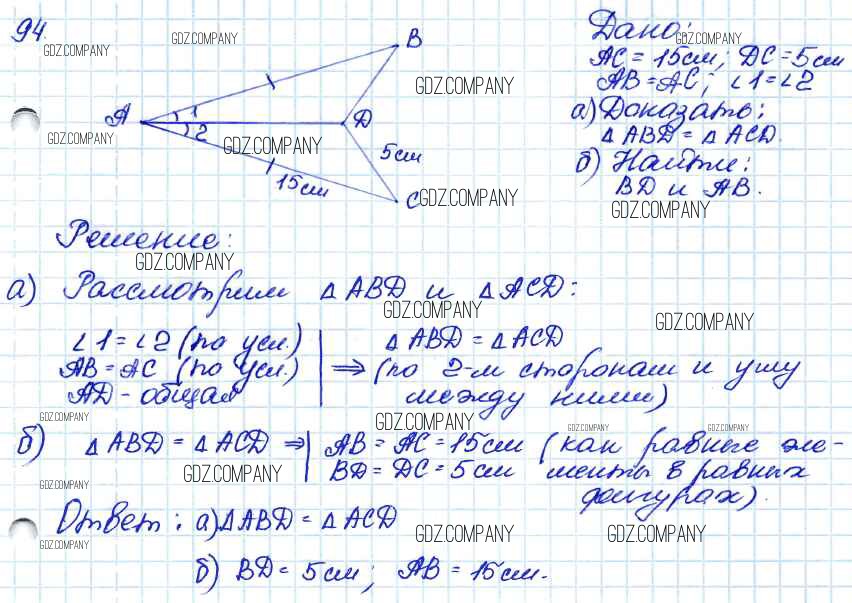 94.
GDZ.COMPANY
GDZ.COMPANY
B
Дано:
GDZ.COMPANY
AC = 15см; DC = 5см
AB = AC; ∠1 = ∠2
GDZ.COMPANY
а) Доказать:
A
1
2
D
△ABD = △ACD.
GDZ.COMPANY
GDZ.COMPANY
5см
б) Найти:
15см
C
GDZ.COMPANY
BD и AB.
GDZ.COMPANY
Решение:
GDZ.COMPANY
а) Рассмотрим △ABD и △ACD:
GDZ.COMPANY
GDZ.COMPANY
∠1 = ∠2 (по усл.) △ABD = △ACD
AB = AC (по усл.) ⇒ (по 2-м сторонам и углу
AD - общая между ними)
GDZ.COMPANY
GDZ.COMPANY
GDZ.COMPANY
GDZ.COMPANY
б) △ABD = △ACD ⇒ AB = AC = 15см (как равные эле-
GDZ.COMPANY
BD = DC = 5см менты в равных
GDZ.COMPANY
фигурах).
Ответ: а) △ABD = △ACD
GDZ.COMPANY
GDZ.COMPANY
GDZ.COMPANY
б) BD = 5см; AB = 15см.